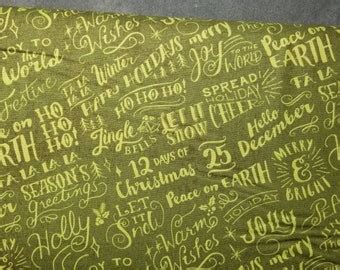 to the
World
Festive
Peace on
EARTH
HO
HO
HO!
FA LA LA
LA LA
SEASON'S
greetings
Holly
Warm
Wishes
FA LA
LA LA
Winter
HAPPY HOLIDAYS
HO HO HO!
Jingle
BELLS
LET IT
SNOW
12 DAYS OF
Christmas
LET
IT
Snow
merry
Joy
TO THE
WORLD
SPREAD
HOLIDAY
CHEER
25
Peace on EARTH
HOLIDAY
Warm
Wishes
Peace on
EARTH
FA LA LA
LA LA
Hello
December
MERRY
&
BRIGHT
Jolly
Merry